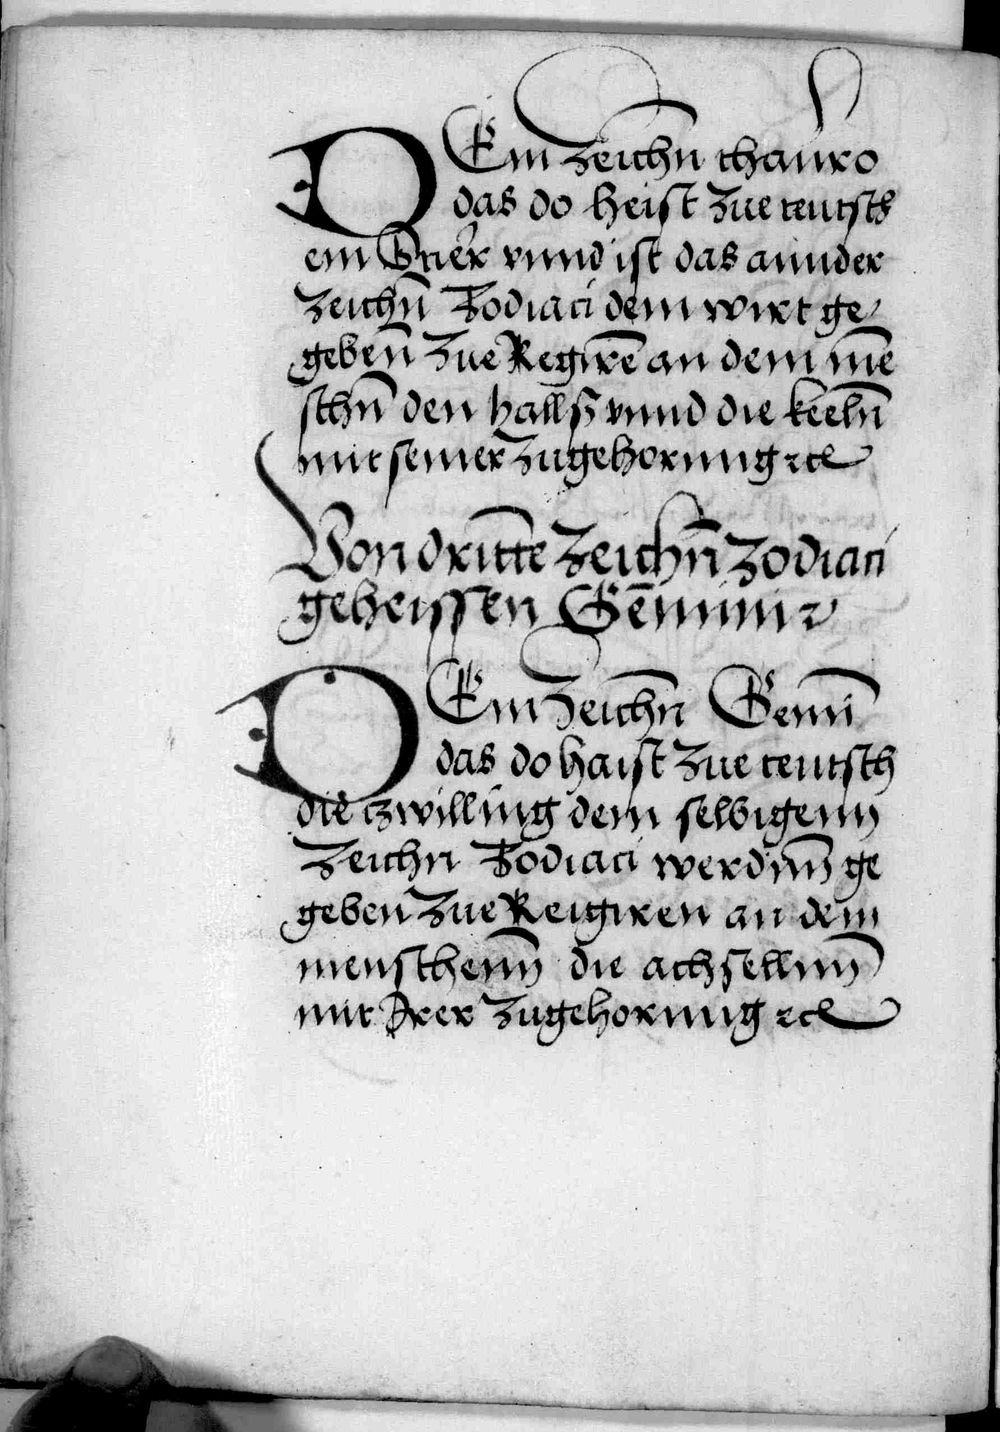 DEm zeichn thauro
das do heist zue teutsch
ein Stier vnnd ist das annder
zeichn Zodiaci dem wirt ge¬
geben zue Regirē an dem mē
schn den hallß vnnd die keeln
mit seiner zugehorung ꝛcꝭ
Von dritte zeichn zodiaci
geheissen Geminiꝛ
DEm zeichn Gemi
das do haist zue teutsch
die zwilling dem selbigenn
zeichn Zodiaci werdnn ge
geben zue Reigiren an dem
menschenn die achsellnn
mit Irer zugehorung ꝛcꝭ